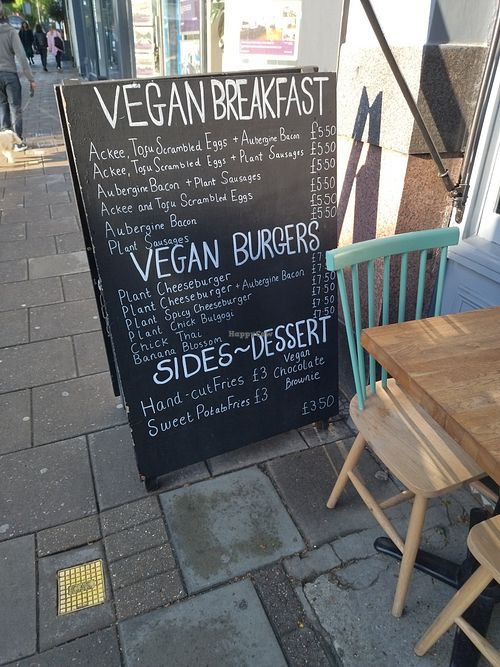 VEGAN BREAKFAST
Ackee, Tofu Scrambled Eggs + Aubergine Bacon £5.50
Ackee, Tofu Scrambled Eggs + Plant Sausages £5.50
Aubergine Bacon + Plant Sausages £5.50
Ackee and Tofu Scrambled Eggs £5.50
Aubergine Bacon £5.50
Plant Sausages £5.50
VEGAN BURGERS
Plant Cheeseburger
Plant Cheeseburger + Aubergine Bacon
Plant Spicy Cheeseburger £7.50
Plant Chick Bulgogi £7.50
Chick Thai £7.50
Banana Blossom £7.50
SIDES~DESSERT
Hand-cut Fries £3
Sweet Potato Fries £3
Vegan
Chocolate
Brownie
£3.50
HappyCow